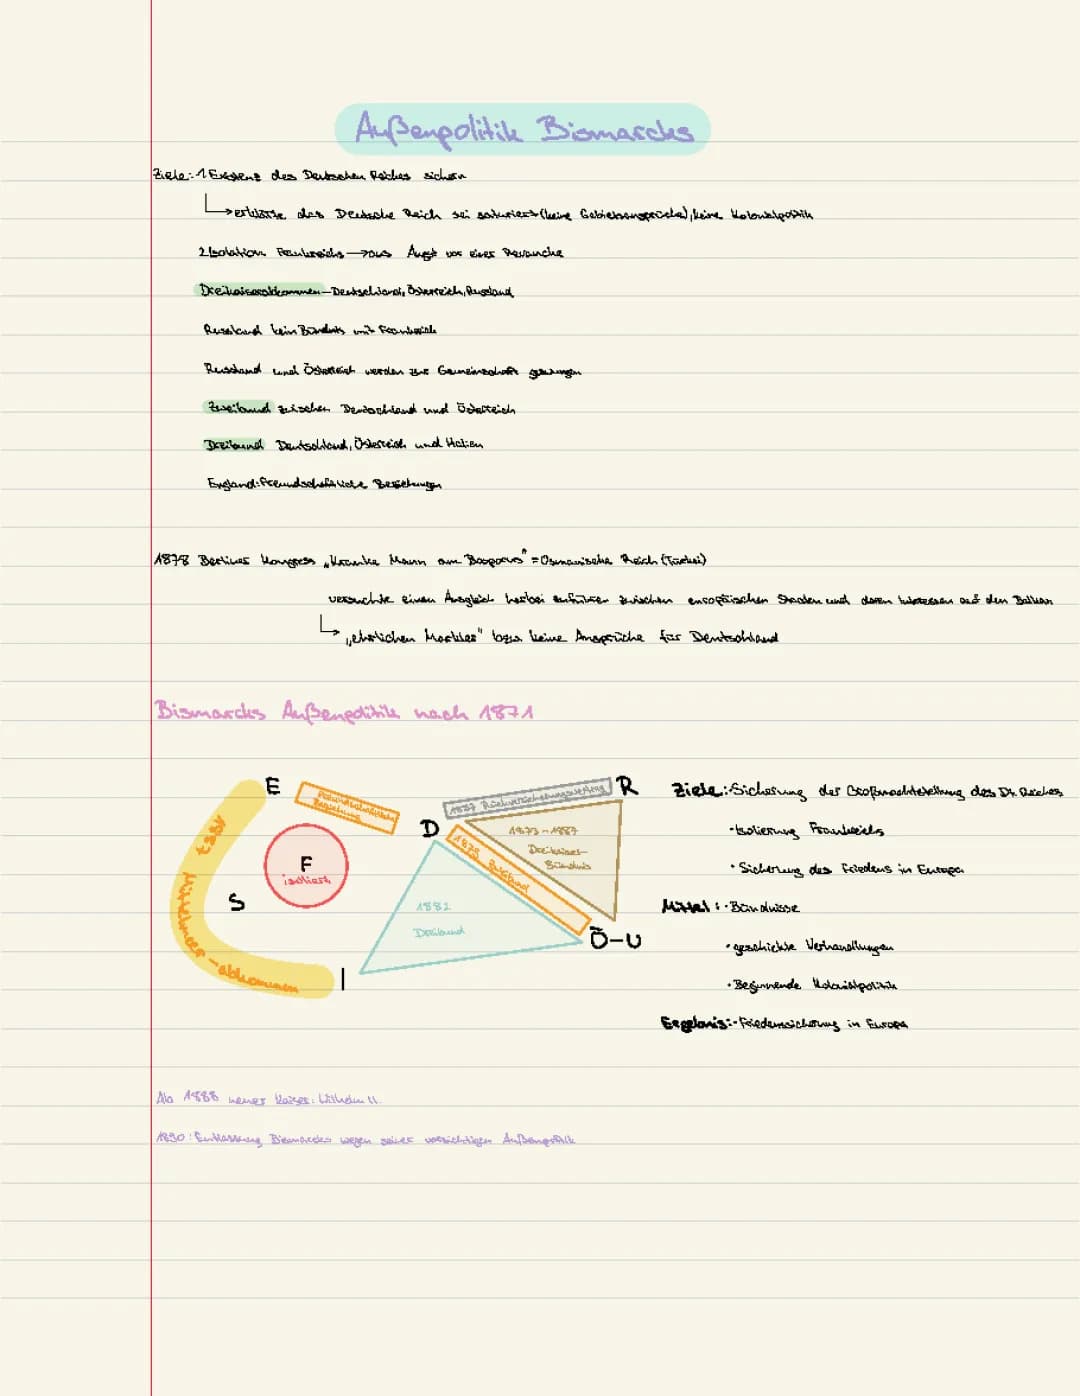 Außenpolitik Bismarcks
Ziele: 1 Existenz des Deutschen Reiches sichern
→ erklärte das Deutsche Reich sei saturiert (keine Gebietsansprüche), keine Kolonialpolitik
2 Isolation Frankreichs → aus Angst vor einer Revanche
Dreikaiserabkommen - Deutschland, Österreich, Russland
Russland kein Bündnis mit Frankreich
Russland und Österreich werden zur Gemeinschaft gezwungen
Zweibund zwischen Deutschland und Österreich
Dreibund Deutschland, Österreich und Italien
England: freundschaftliche Beziehungen
1878 Berliner Kongress „Kranke Mann am Bosporus" = Osmanische Reich (Türkei)
versuchte einen Ausgleich herbei zuführen zwischen europäischen Staaten und deren Interessen auf den Balkan
→ „ehrlichen Markler" bzw. keine Ansprüche für Deutschland
Bismarcks Außenpolitik nach 1871
E
Freundschaftliche
Beziehung
1887 Rückversicherungsvertrag
R
D
1873-1887
Dreikaiser-
Bündnis
1879 Zweibund
F
isoliert
S
1882
Dreibund
Ö-U
I
1887 Mittelmeer-abkommen
Ziele: · Sicherung der Großmachtstellung des Dt. Reiches
· Isolierung Frankreichs
· Sicherung des Friedens in Europa
Mittel: · Bündnisse
· geschickte Verhandlungen
· Beginnende Kolonialpolitik
Ergebnis: · Friedenssicherung in Europa
Ab 1888 neuer Kaiser: Wilhelm II.
1890: Entlassung Bismarcks wegen seiner vorsichtigen Außenpolitik